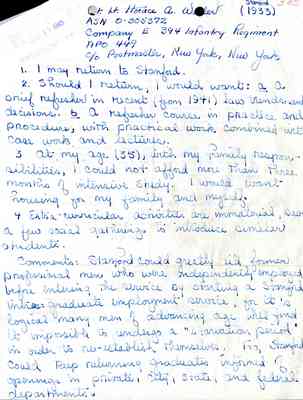 1st Lt. Horace A. (1933)
ASN 0-305372
Company E 394 Infantry Regiment
APO 449
c/o Postmaster, New York, New York
1. I may return to Stanford.
2. Should I return, I would want: a. A
brief refresher in recent (from 1941) law trends and
decisions. b. A refresher course in practice and
procedure, with practical work combined with
case work and lectures.
3. At my age (35), with my family respon-
sibilities, I could not afford more than three
months of intensive study. I would want
housing for my family and myself.
4. Extra-curricular activities are immaterial, save
a few social gatherings to introduce similar
students.
Comments: Stanford could greatly aid former
professional men who were independently employed
before entering the service by creating a Stanford
graduate employment service, for it is
logical many men of advancing age will find
it impossible to undergo a "starvation period",
in order to re-establish themselves. Stanford
could keep returning graduates informed of
openings in private, city, state, and federal
departments.